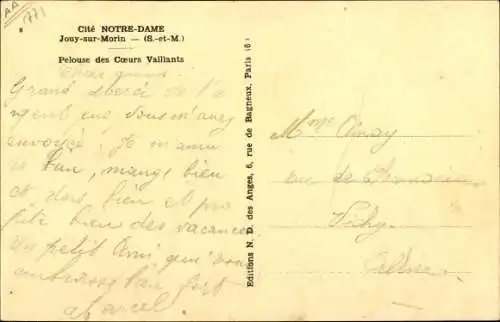 AA
1771
Cité NOTRE-DAME
Jouy-sur-Morin — (S.-et-M.)
Pelouse des Cœurs Vaillants
Grand merci de l'a
rgent que vous m'avez
envoyée. Je m'amu
se bien, mange bien
et dors bien et pro
fite bien des vacances
Un petit Ami qui vous
embrasse bien fort
Marcel
Editions N. D. des Anges, 6, rue de Bagneux, Paris (6)
Mme Amay
rue de
Vichy
Allier